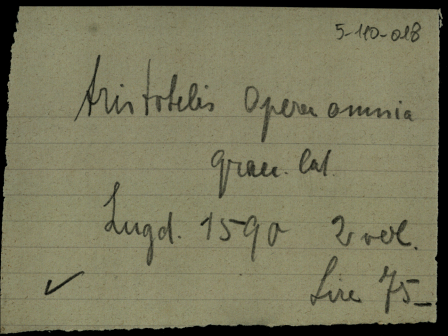 5-110-018
Aristotelis Opera omnia
graec. lat.
Lugd. 1590 2 vol.
Lire 75_